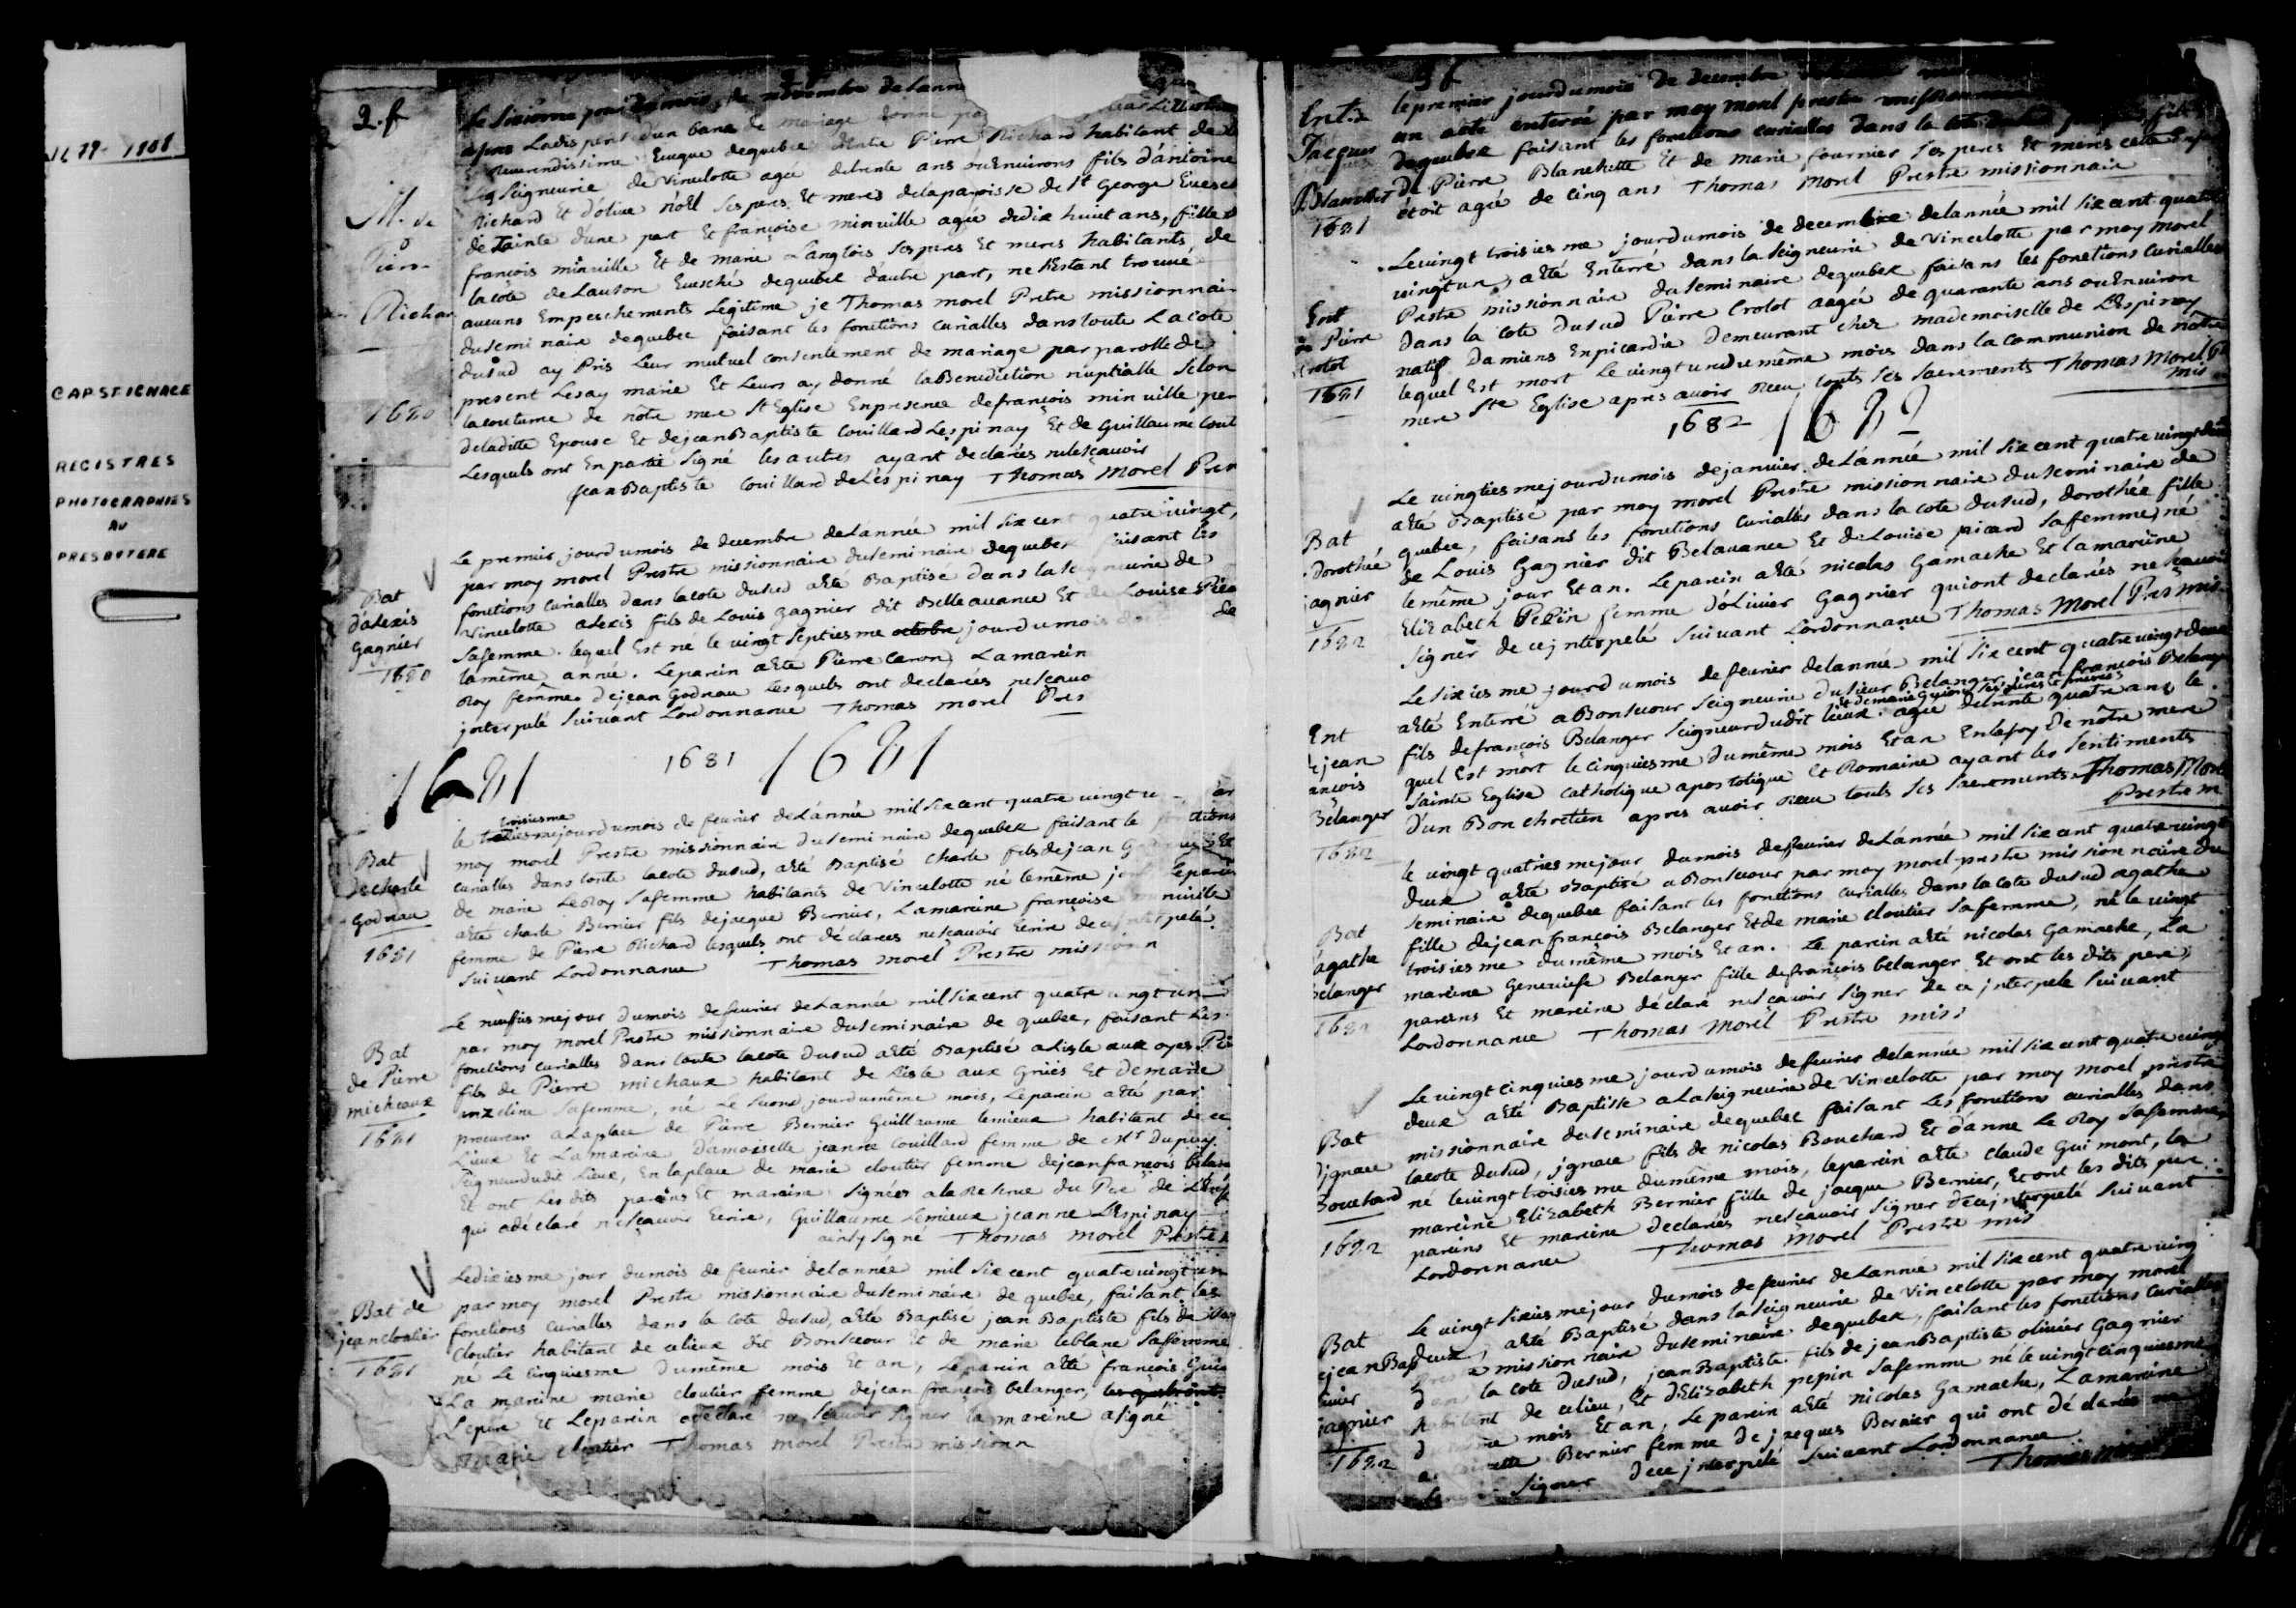 1679-1808
CAP ST IGNACE
REGISTRES
PHOTOGRAPHIES
AU
PRESBYTERE
2.f
M. de
Pierre
Richar
1680
Le sixiême jour du mois de novembre de Lann
apres La dispense d'un banc de mariage donné par
Reverendissime Eueque de quebec Entre Pierre Richard habitant de
La Seigneurie de Vincelotte agée de trente ans ou Environs fils d'antoine
Richard Et d'oliue nöel ses peres Et meres de la paroisse de St George Euesc
de Tainte d'une part Et françoise minuille agée de dix huit ans, fille d
françois minuille Et de marie Langlois ses peres Et meres habitants, de
la côte de Lauson Euesché de quebec d'autre part, ne s'Estant trouué
aucuns Empeschements Legitime je Thomas morel Pretre missionnair
du seminaire de quebec faisant les fonctions curialles dans toute La cote
du sud ay Pris Leur mutuel consentement de mariage par parolle de
present Les ay marié Et Leurs ay donné la Benediction nuptialle selon
la coutume de notre mere St Eglise En presence de françois minuille per
de la ditte Epouse Et de jean Baptiste Couillard Lespinay Et de Guillaume Coul
Lesquels ont En partie signé les autres ayant declarés ne sçauoir
jean Baptiste Couillard de Léspinay Thomas Morel Pres
Bat
d'alexis
Gagnier
1680
Le premier jour du mois de decembre de Lannée mil six cent quatre vingt,
par moy morel Prestre missionnaire du seminaire de quebek faisant les
fonctions curialles dans la cote du sud a Eté Baptisé dans la seigneurie de
Vincelotte alexis fils de Louis gagnier dit Belleauance Et de Louise Pica
sa femme. lequel Est né le vingt septiesme octobre jour du mois de
la même année. Le parein a Eté Pierre Caron, La marein
Roy femme de jean Godreau Lesquels ont declarées ne sçauo
interpelé suivant Lordonnance Thomas morel Pres
1681 1681 1681
Bat
de charle
Godreau
1681
troisiesme
le jour du mois de feurier de Lánnée mil six cent quatre vingt u par
moy morel Prestre missionnaire du seminaire de quebek faisant le fonctions
curialles dans toute la cote du sud, a Eté Baptisé charle fils de jean Godreau Et
de marie Le Roy sa femme habitants de Vincelotte né le même jour Le parein
a Eté charle Bernier fils de jacque Bernier, La mareine françoise minuille
femme de Pierre Richard lesquels ont déclarées ne sçauoir Ecrire de ce interpelé
suiuant Lordonnance Thomas morel Prestre mission
Bat
de Pierre
micheaux
1681
Le neufuiesme jour du mois de feurier de Lannée mil six cent quatre vingt un
par moy morel Pretre missionnaire du seminaire de quebec, faisant Les
fonctions curialles dans toute la cote du sud a Eté Baptisé a Lisle aux oyes Pie
fils de Pierre michaux habitant de Lisle aux Grues Et de marie
sa femme, né Le second jour du même mois, Le parein a Eté par
procureur a La place de Pierre Bernier Guillaume lemieux habitant de ce
Lieux Et La mareine Damoiselle jeanne Couillard femme de Mr Dupuy
Seigneur du dit Lieux, En la place de marie cloutier femme de jean françois bélan
Et ont Les dits pareins Et mareine signées a la Reserue du Pere de L'
qui a déclaré ne sçauoir Ecrire, Guillaume Lemieux jeanne Lespinay
ainsy signé Thomas morel Prestre
Bat de
jean cloutier
1681
Le dixiesme jour du mois de feurier de lannée mil six cent quatre vingt un
par moy morel Prestre missionnaire du seminaire de quebec, faisant les
fonctions curialles dans la cote du sud, a Eté Baptisé jean Baptiste fils de
cloutier habitant de ce lieux dit Bonsecour Et de marie leblanc sa femme
ne Le cinquiesme du même mois Et an, Le parein a Eté françois Guio
La mareine marie cloutier femme de jean françois belanger,
Le pere Et Le parein declaré ne sçauoir signer la mareine a signé
marie cloutier Thomas morel Prestre missionn
3 f
Ent. de
Jacques
Blanchet
1681
le premier jour du mois de decembre
un a eté enterré par moy morel prestre missionn
de quebek faisant les fonctions curialles dans la cote
de Pierre Blanchette Et de marie fournier ses peres Et meres cette Enf
étoit agé de cinq ans Thomas Morel Prestre missionnair
Ent
de Pierre
Crolot
1681
Le vingt troisiesme jour du mois de decembre de lannée mil six cent quatre
vingt un, a Eté Enterré dans la seigneurie de Vincelotte par moy morel
Prestre missionnaire du seminaire de quebek faisans les fonctions curialles
dans la cote du sud Pierre Crolot aagée de quarante ans ou Environ
natif Damiens En picardie Demeurant chez mademoiselle de L'Espinay
lequel Est mort Le vingt un du même mois dans la communion de nôtre
mere Ste Eglise apres auoir receu touts ses sacrements Thomas Morel P
mis
1682 1682
Bat
Dorothé
gagnier
1682
Le vingtiesme jour du mois de januier de L'année mil six cent quatre vingt deux
a Eté Baptisé par moy morel Prestre missionnaire du seminaire de
quebec, faisans les fonctions curialles dans la cote du sud, dorothée fille
de Louis gagnier dit Belauance Et de Louise picard sa femme, né
le même jour Et an. Le parein a Eté nicolas Gamache Et la mareine
Elizabeth Pepin femme d'oliuier Gagnier qui ont declarés ne sçauoir
signer de ce interpelé suiuant Lordonnance Thomas Morel Pres mis
Ent
de jean
ançois
Bélanger
1682
Le sixiesme jour du mois de feurier de lannée mil six cent quatre vingt deux
a Eté Enterré a Bonsecour Seigneurie du sieur Belanger jean françois Belang
Et de marie Guion ses peres Et meres
fils de françois Belanger Seigneur du dit lieux. agée de trente quatre ans le
quel Est mort le cinquiesme du même mois Et an En la foy De nôtre mere
sainte Eglise catholique apostolique Et Romaine ayant les sentiments
d'un Bon chretien apres auoir receu touts ses sacrements Thomas Morel
Prestre m
Bat
d'agathe
belanger
1682
le vingt quatriesme jour du mois de feurier de L'année mil six cent quatre vingt
deux a Eté Baptisé a Bonsecour par moy morel prestre missionnaire du
seminaire de quebec faisant les fonctions curialles dans la cote du sud agathe
fille de jean françois Belanger Et de marie cloutier sa femme, né le vingt
troisiesme du même mois Et an. Le parein a Eté nicolas Gamache, La
mareine Geneuiefe Belanger fille de françois belanger Et ont les dits pere
pareins Et mareine déclaré ne sçauoir signer de ce interpelé suiuant
Lordonnance Thomas Morel Prestre miss
Bat
d'ignace
Bouchard
1682
Le vingt cinquiesme jour du mois de feurier de lannée mil six cent quatre vingt
deux a Eté Baptisse a La seigneurie de Vincelotte par moy morel prestre
missionnaire du seminaire de quebec faisant Les fonctions curialles dans
la cote du sud, ignace fils de nicolas Bouchard Et d'anne Le Roy sa femme
né le vingt troisiesme du même mois, le parein a Eté claude Guimont, la
mareine Elizabeth Bernier fille de jacque Bernier, Et ont les dits pere
pareins Et mareine declarés ne sçauoir signer de ce interpelé suiuant
Lordonnance Thomas Morel Prestre mis
Bat
de jean Bap
iuier
gagnier
1682
Le vingt sixiesme jour du mois de feurier de Lannée mil six cent quatre ving
deux, a Eté Baptisé dans la seigneurie de Vincelotte par moy morel
missionnaire du seminaire de quebek, faisant les fonctions curialles
dans la cote du sud, jean Baptiste fils de jean Baptiste oliuier Gagnier
habitant de ce lieu, Et d'Elizabeth pepin sa femme né le vingt cinquiesme
mois Et an, Le parein a Eté nicolas Gamache, La mareine
Bernier femme de jacques Bernier qui ont déclarés ne
signer de ce interpelé suiuant Lordonnance
Thomas Morel